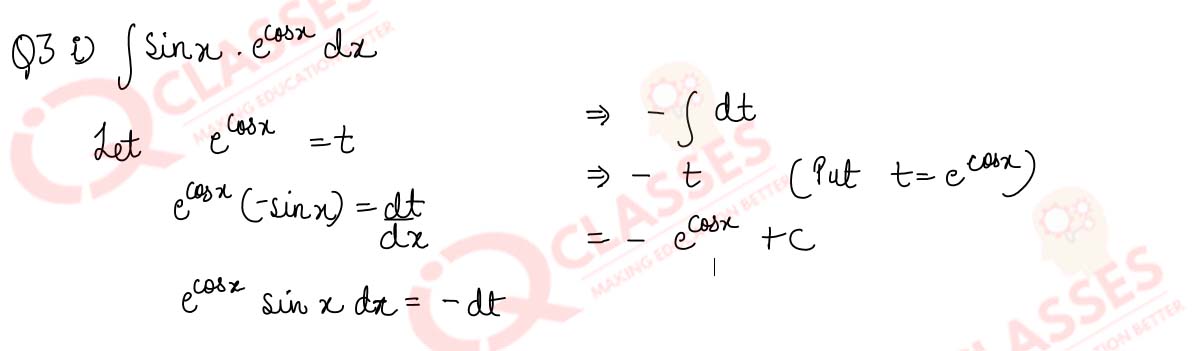 Q3 i) ∫ sinx · e^cosx dx
Let e^cosx = t
e^cosx (-sinx) = dt/dx
e^cosx sin x dx = -dt
⇒ - ∫ dt
⇒ - t (Put t = e^cosx)
= - e^cosx + C
IQ CLASSES
MAKING EDUCATION BETTER
IQ CLASSES
MAKING EDUCATION BETTER
LASSES
ION BETTER